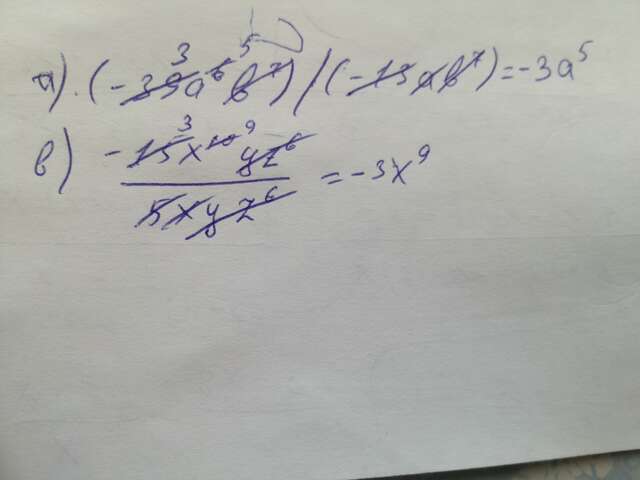 а). (-39a⁶b⁷) / (-13ab⁷) = -3a⁵
в) -15x¹⁰yz⁶ / 5xyz⁶ = -3x⁹